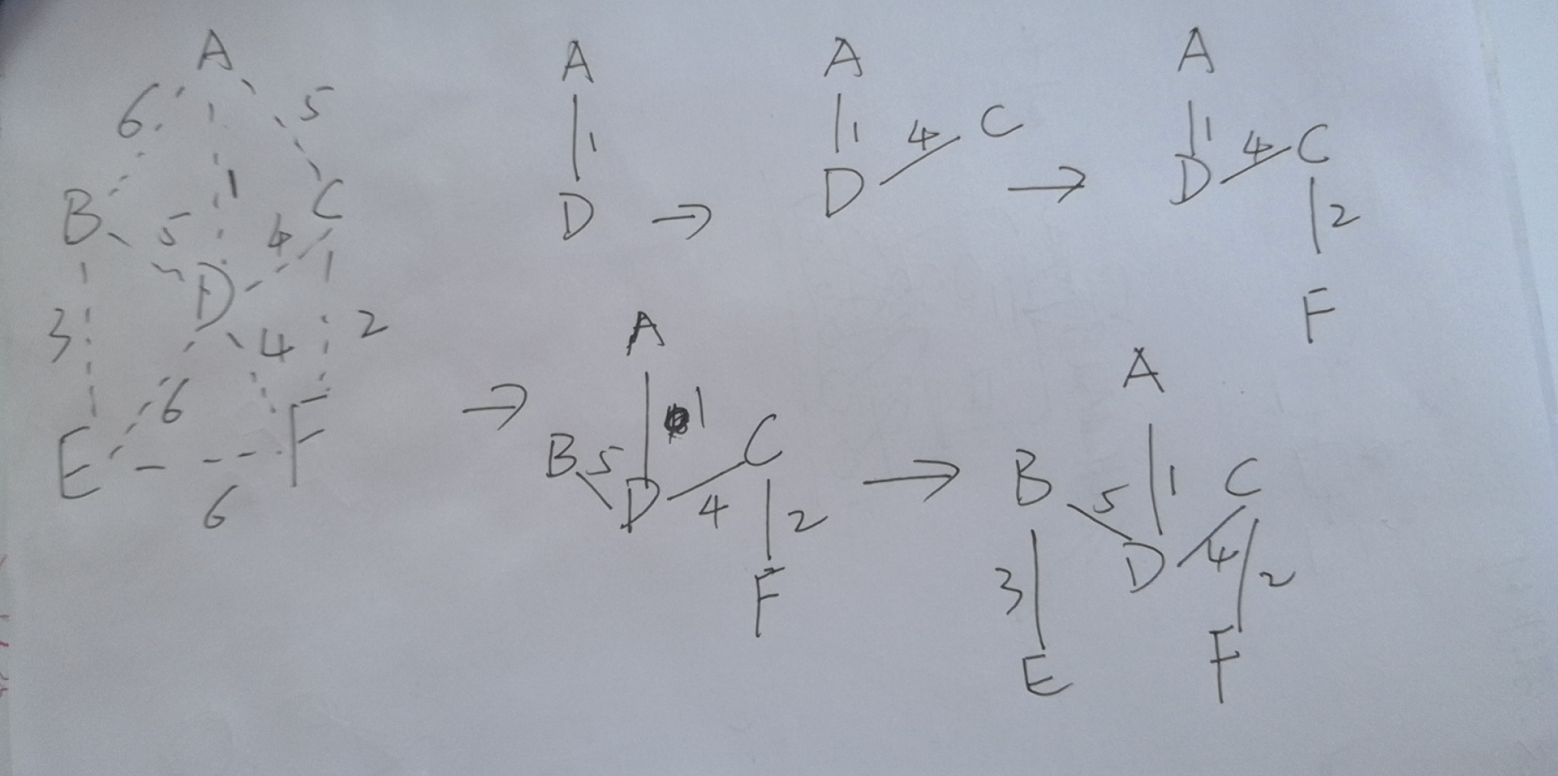 A
6 5
B 1 C
5 4
D
3 4 2
6
E F
6
A
1
D
→
A
1 4 C
D
→
A
1 4 C
D
2
F
→
A
1
B 5 C
D 4
2
F
→
A
B 5 1 C
D 4
3 2
E F